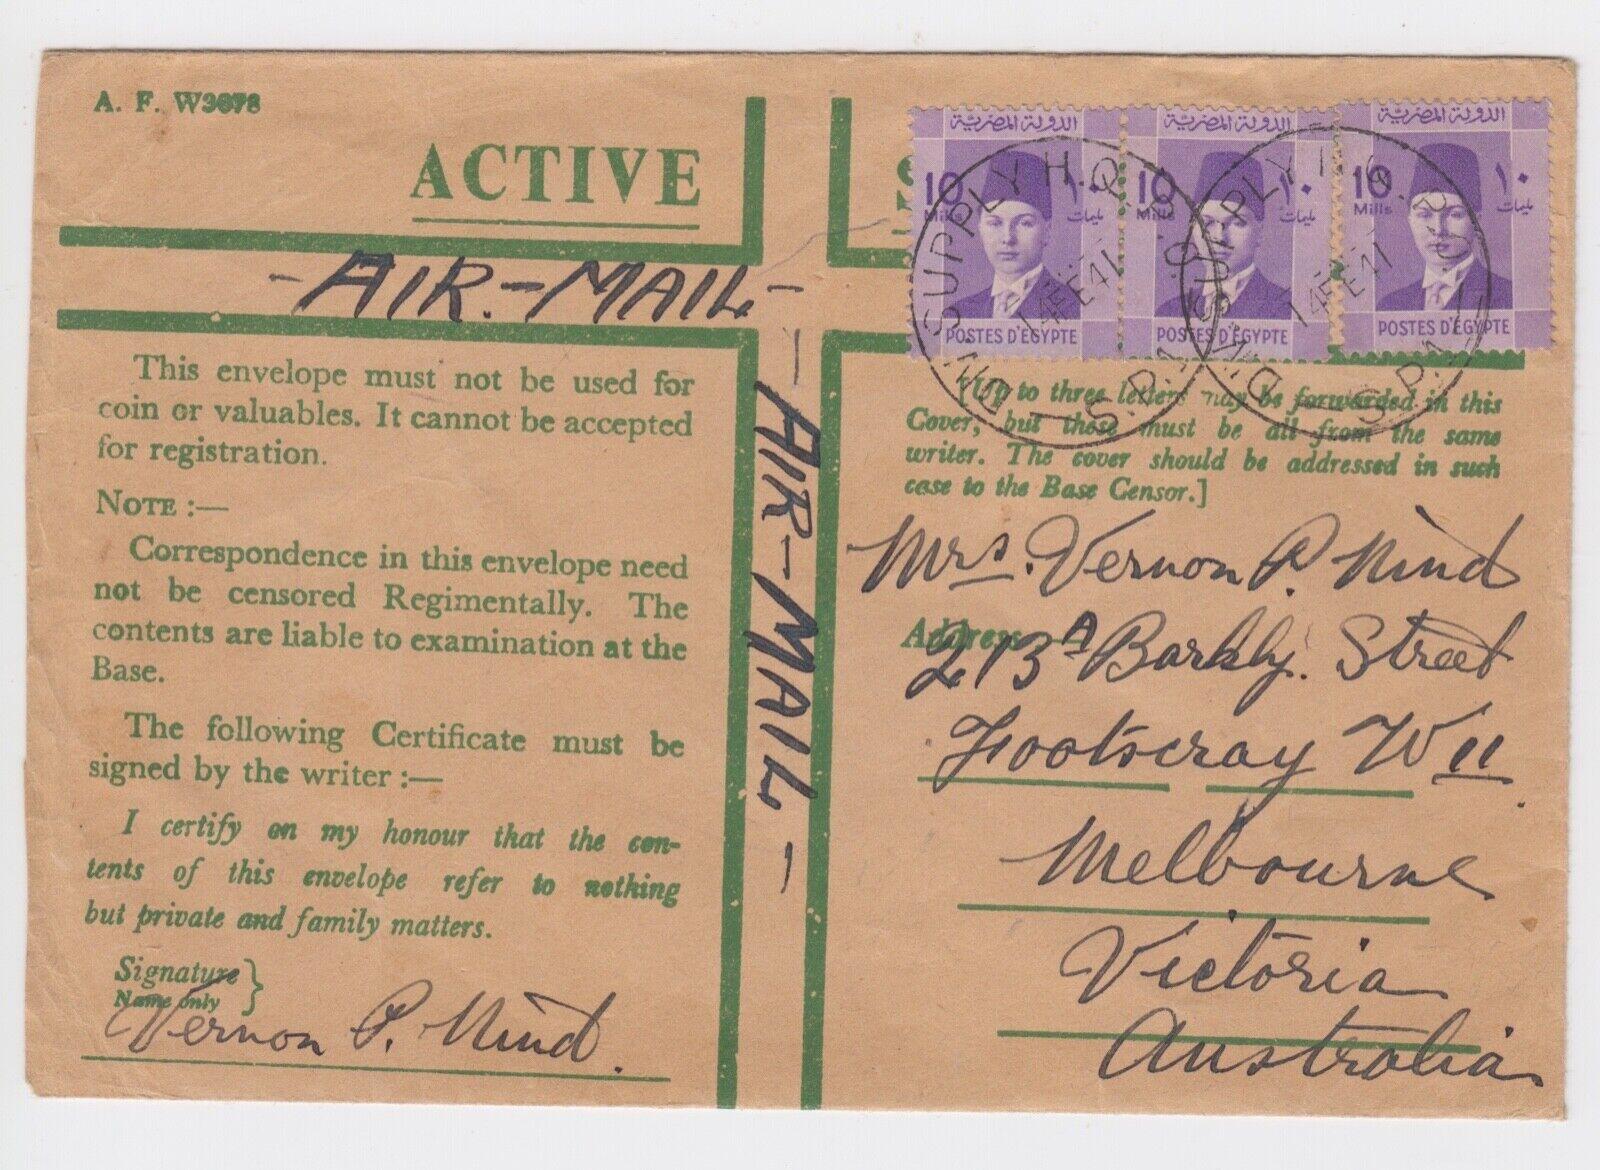 A. F. W3078
ACTIVE
الدولة المصرية
10
Mills
١٠
مليمات
POSTES D'EGYPTE
الدولة المصرية
10
Mills
١٠
مليمات
POSTES D'EGYPTE
الدولة المصرية
10
Mills
١٠
مليمات
POSTES D'EGYPTE
SUPPLY H.Q.
14 FE 41
14 FE 41
- AIR.-MAIL -
- AIR-MAIL -
This envelope must not be used for
coin or valuables. It cannot be accepted
for registration.
NOTE :—
Correspondence in this envelope need
not be censored Regimentally. The
contents are liable to examination at the
Base.
The following Certificate must be
signed by the writer :—
I certify on my honour that the con-
tents of this envelope refer to nothing
but private and family matters.
Signature }
Name only
Vernon P. Nind.
[Up to three letters may be forwarded in this
Cover, but these must be all from the same
writer. The cover should be addressed in such
case to the Base Censor.]
Mrs. Vernon P. Nind
Address
213A Barkly. Street
Footscray W 11.
Melbourne
Victoria
Australia